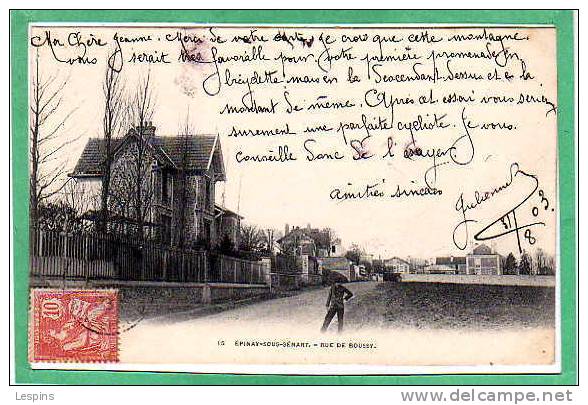 Ma Chère Jeanne. Merci de votre carte, je crois que cette montagne
vous serait très favorable pour votre première promenade en
bicyclette mais en la descendant dessus et en la
montant de même. Après cet essai vous serez
surement une parfaite cycliste. Je vous
conseille donc de l'essayer.
amitiés sincères
Julienne
31/8 03
15 ÉPINAY-SOUS-SÉNART. - RUE DE BOUSSY.
10
Lespins
© delcampe.net